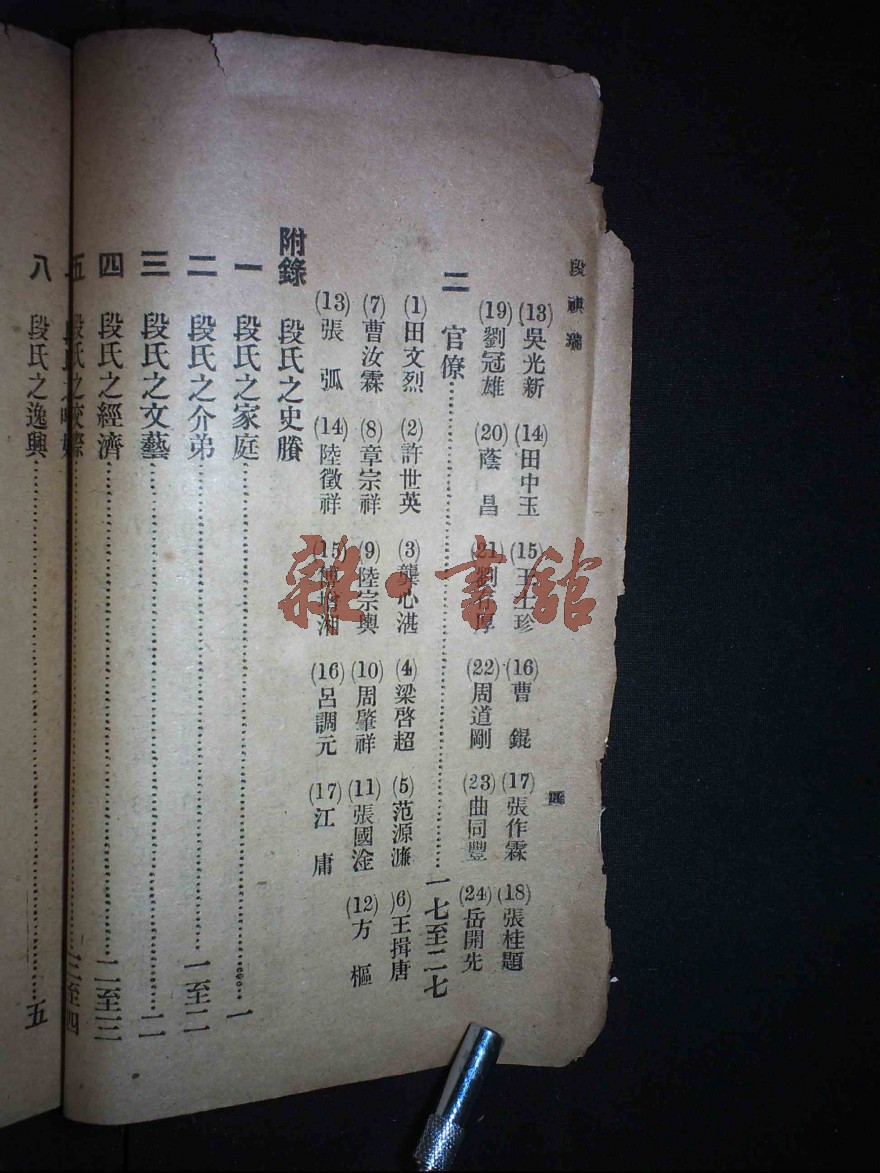 段祺瑞
四
(13)吳光新 (14)田中玉 (15)王士珍 (16)曹 錕 (17)張作霖 (18)張桂題
(19)劉冠雄 (20)蔭 昌 (21)劉 厚 (22)周道剛 (23)曲同豐 (24)岳開先
二 官僚…………一七至二七
(1)田文烈 (2)許世英 (3)龔心湛 (4)梁啓超 (5)范源濂 (6)王揖唐
(7)曹汝霖 (8)章宗祥 (9)陸宗輿 (10)周肇祥 (11)張國淦 (12)方 樞
(13)張 弧 (14)陸徵祥 (15)湘 (16)呂調元 (17)江 庸
附錄 段氏之史賸
一 段氏之家庭…………一
二 段氏之介弟…………一至二
三 段氏之文藝…………二
四 段氏之經濟…………二至三
五 段氏之…………三至四
八 段氏之逸興…………五
雜·書館